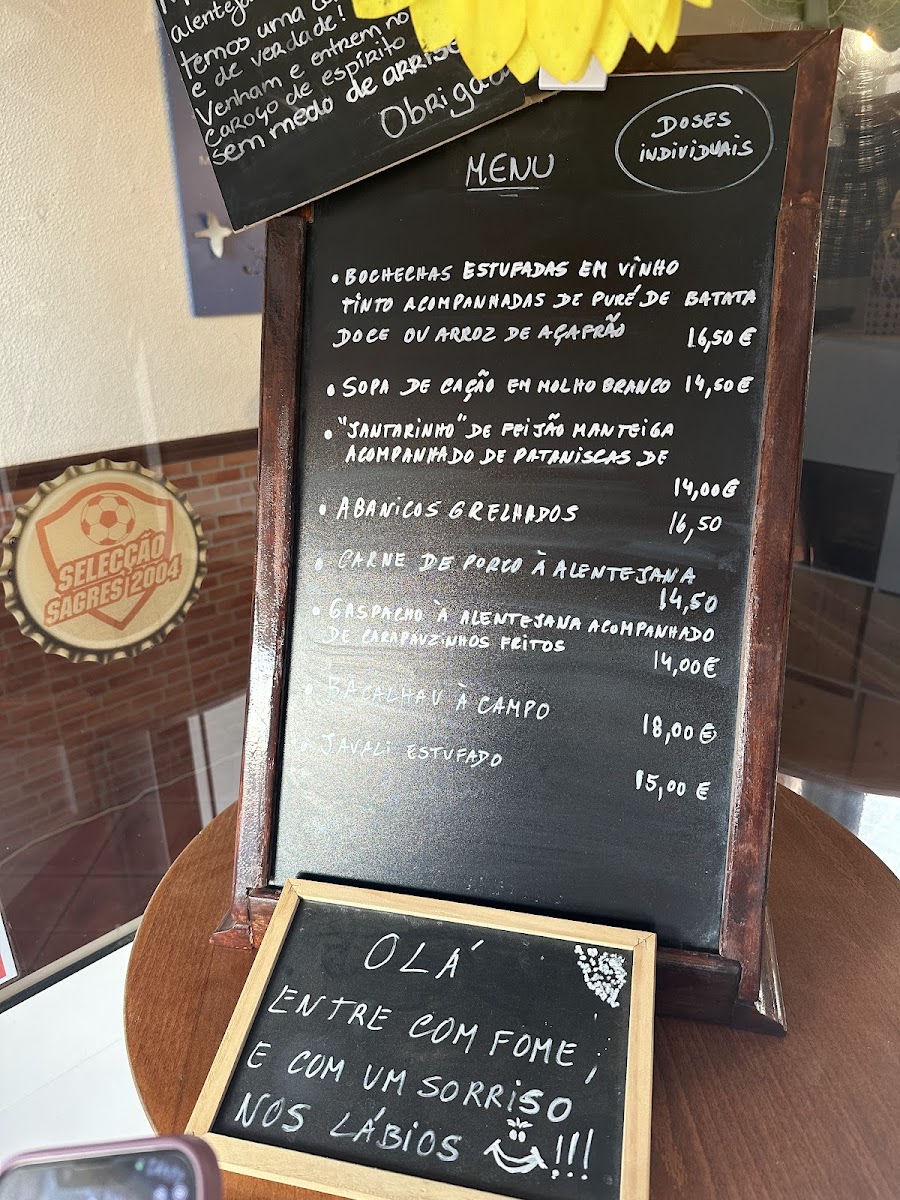 alenteja
temos uma
e de verdade!
Venham e entrem no
caroço de espírito
sem medo de
Obrigad
MENU
DOSES
INDIVIDUAIS
• BOCHECHAS ESTUFADAS EM VINHO
TINTO ACOMPANHADAS DE PURÉ DE BATATA
DOCE OU ARROZ DE AÇAFRÃO 16,50 €
• SOPA DE CAÇÃO EM MOLHO BRANCO 14,50€
• "JANTARINHO" DE FEIJÃO MANTEIGA
ACOMPANHADO DE PATANISCAS DE
14,00€
• ABANICOS GRELHADOS 16,50
• CARNE DE PORCO À ALENTEJANA
14,50
• GASPACHO À ALENTEJANA ACOMPANHADO
DE CARAPAUZINHOS FRITOS
14,00€
• BACALHAU À CAMPO
18,00 €
• JAVALI ESTUFADO
15,00 €
SELECÇÃO
SAGRES 2004
OLÁ
ENTRE COM FOME ;
E COM UM SORRISO
NOS LÁBIOS !!!